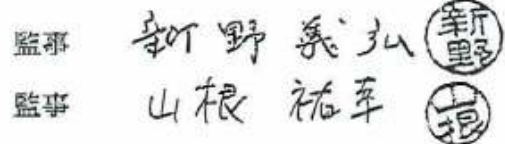 監事 新野 義弘 新野
監事 山根 祐幸 山根